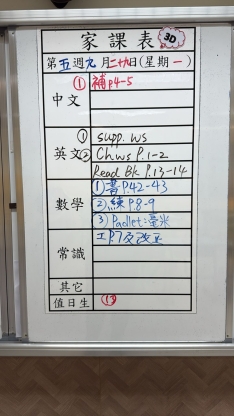 家課表 3D
第五週九月二十九日(星期一)
中文 ①補p4-5
英文 ① supp. ws
② Ch ws P.1-2
Read Bk P.13-14
數學 ①書P.42-43
②練P.8-9
③Padlet:毫米
常識 工P.7及改正
其它
值日生 ⑰